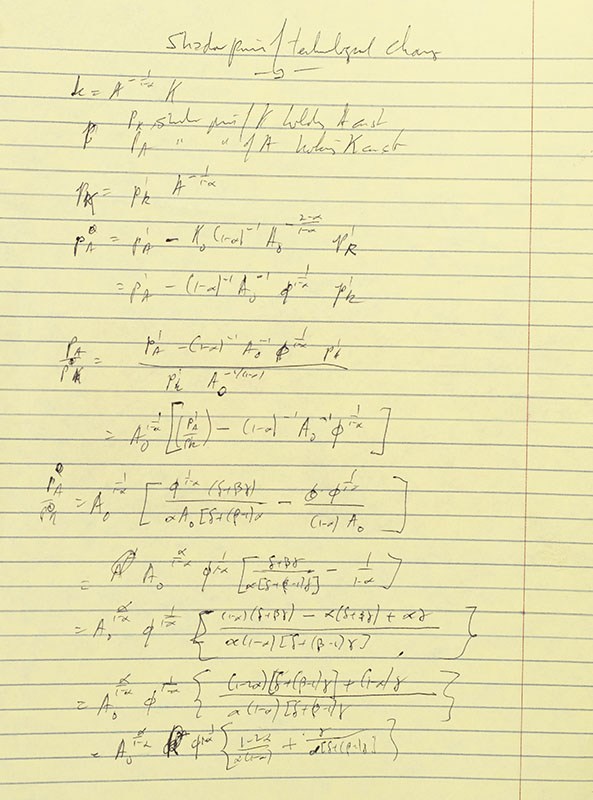 Shadow price of technological change
k = A^{-1/(1-α)} K
P_K shadow price of K holding A const
P_A " " of A holding K const
p_K = p_k^1 A^{-1/(1-α)}
p_A^0 = p_A^1 - K_0 (1-α)^{-1} A_0^{-(2-α)/(1-α)} p_k^1
= p_A^1 - (1-α)^{-1} A_0^{-1} φ^{1/(1-α)} p_k^1
p_A/p_K^0 = (p_A^1 - (1-α)^{-1} A_0^{-1} φ^{1/(1-α)} p_k^1) / (p_k^1 A_0^{-1/(1-α)})
= A_0^{1/(1-α)} [(p_A^1/p_k) - (1-α)^{-1} A_0^{-1} φ^{1/(1-α)}]
p_A^0/p_K = A_0^{1/(1-α)} [φ^{1/(1-α)} (δ+βγ) / αA_0[δ+(β-1)γ] - φ^{1/(1-α)} / (1-α) A_0]
= A_0^{α/(1-α)} φ^{1/(1-α)} [(δ+βγ) / α[δ+(β-1)γ] - 1/(1-α)]
= A_0^{α/(1-α)} φ^{1/(1-α)} {((1-α)(δ+βγ) - α(δ+βγ) + αγ) / α(1-α)[δ+(β-1)γ]}
= A_0^{α/(1-α)} φ^{1/(1-α)} {((1-2α)[δ+(β-1)γ] + (1-α)γ) / α(1-α)[δ+(β-1)γ}
= A_0^{α/(1-α)} φ^{1/(1-α)} {(1-2α)/α(1-α) + γ/α[δ+(β-1)γ]}